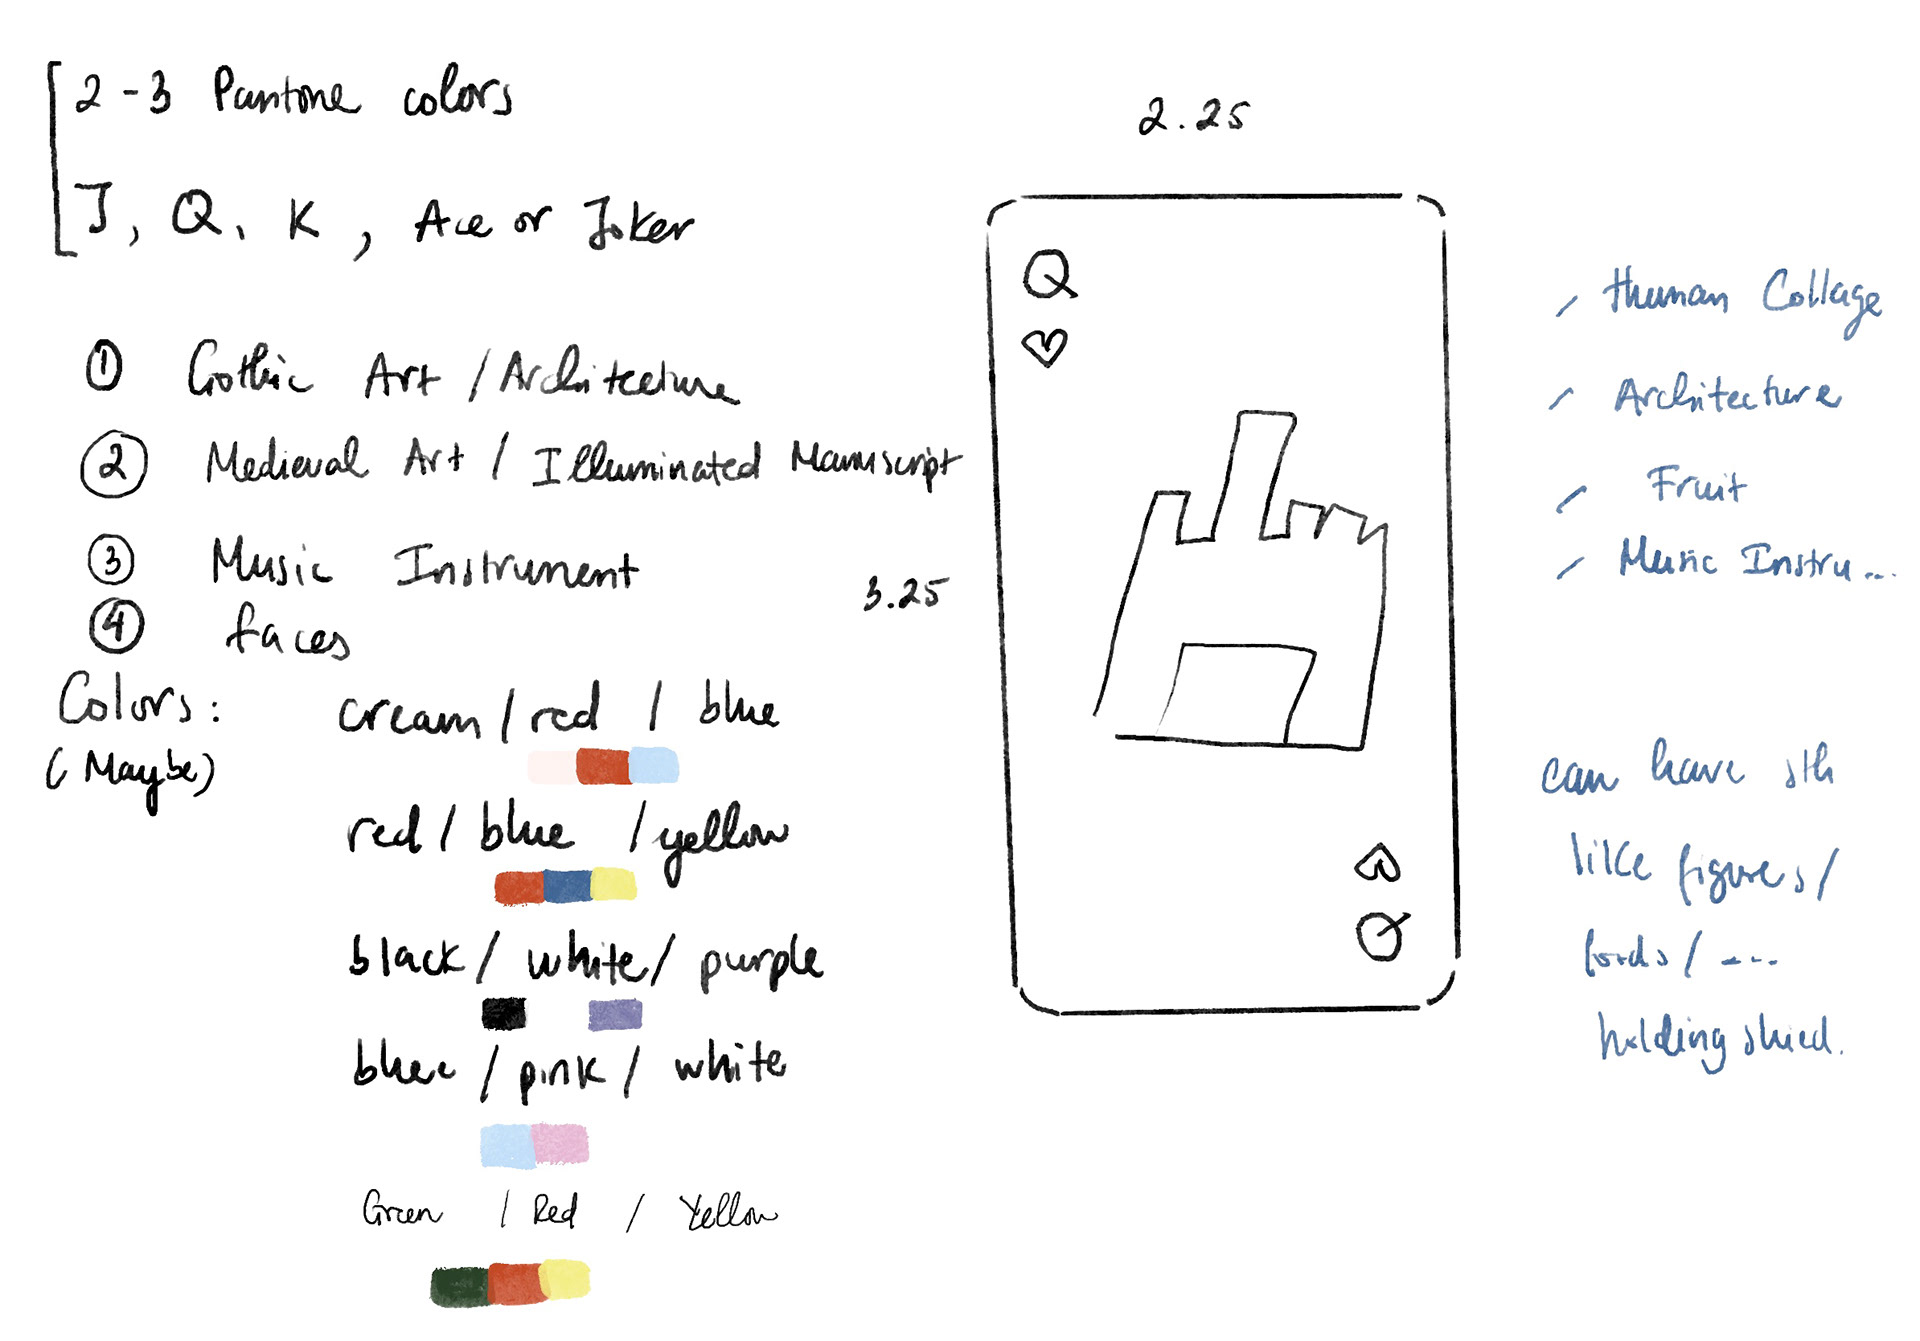 2-3 Pantone colors
J, Q, K, Ace or Joker
① Gothic Art / Architecture
② Medieval Art / Illuminated Manuscript
③ Music Instrument
④ faces
Colors:
(Maybe)
cream / red / blue
red / blue / yellow
black / white / purple
blue / pink / white
Green / Red / Yellow
2.25
3.25
Q
Q
Human Collage
Architecture
Fruit
Music Instru...
can have sth
like figures /
/ ...
holding